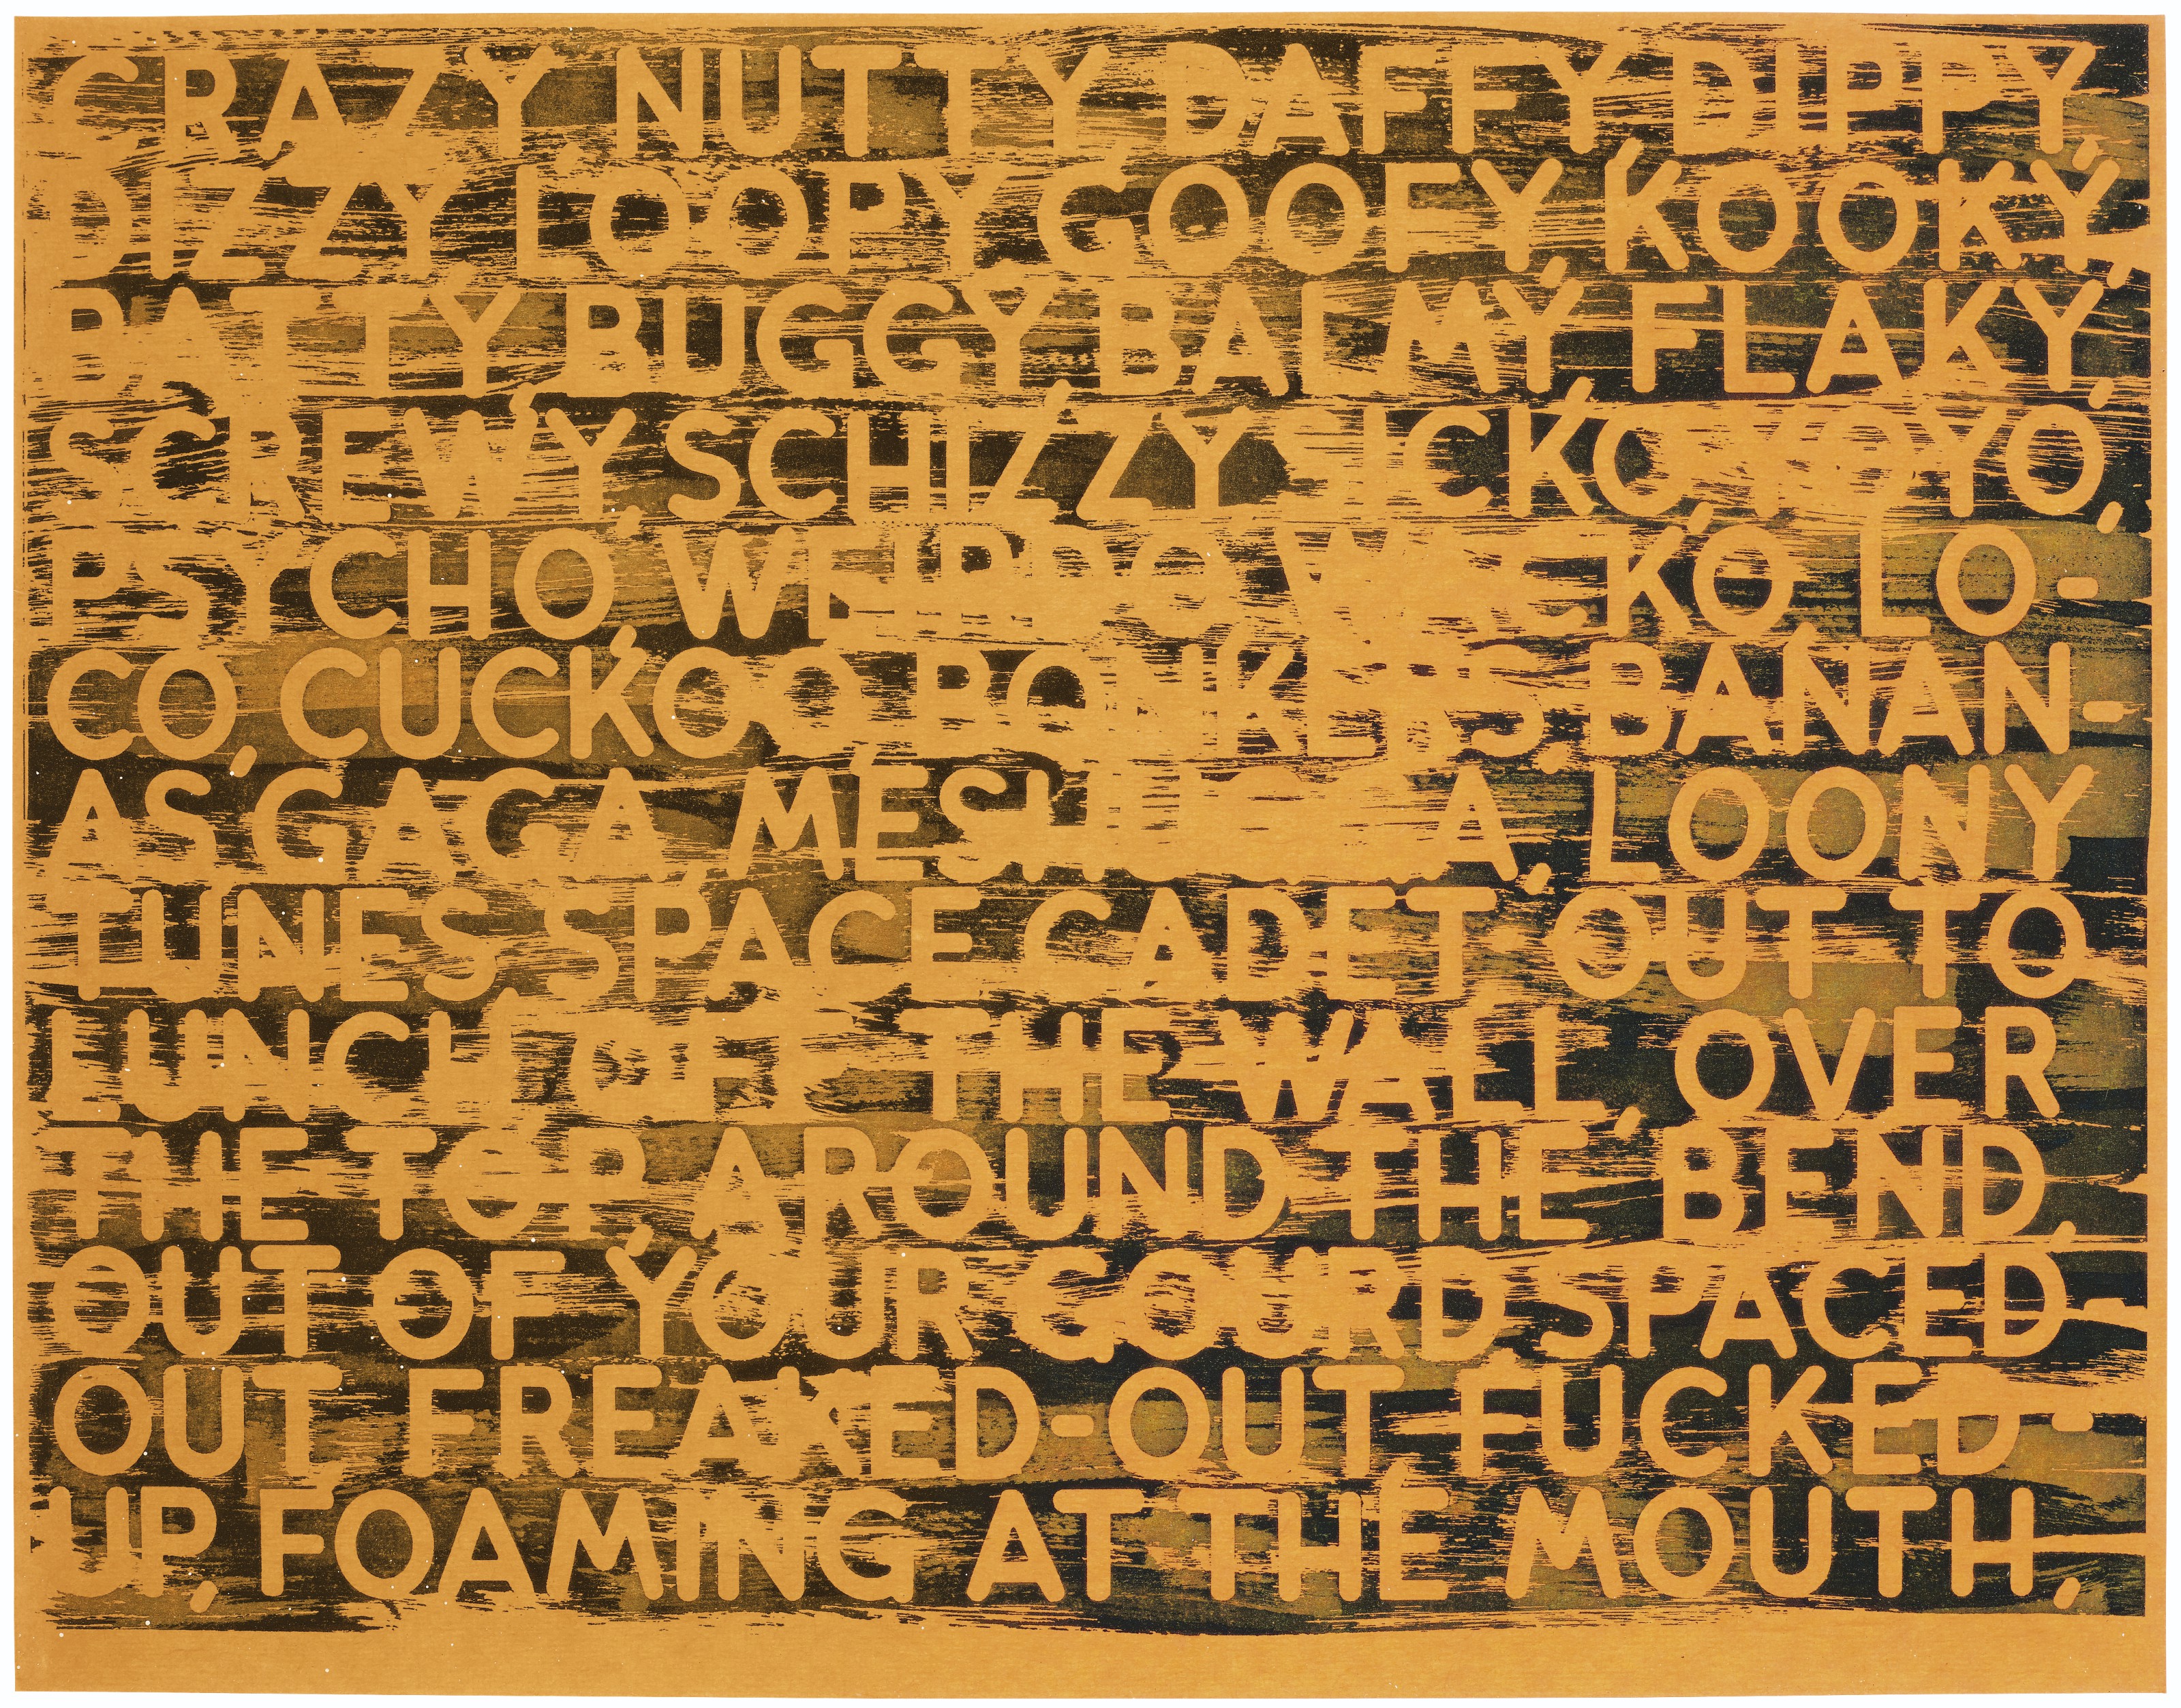 CRAZY, NUTTY, DAFFY, DIPPY,
DIZZY, LOOPY, GOOFY, KOOKY,
BATTY, BUGGY, BALMY, FLAKY,
SCREWY, SCHIZZY, SICKO, YOYO,
PSYCHO, WEIRDO, WACKO, LO-
CO, CUCKOO, BONKERS, BANAN-
AS, GAGA, MESHUGGA, LOONY
TUNES, SPACE CADET, OUT TO
LUNCH, OFF THE WALL, OVER
THE TOP, AROUND THE BEND,
OUT OF YOUR GOURD, SPACED-
OUT, FREAKED-OUT, FUCKED-
UP, FOAMING AT THE MOUTH,